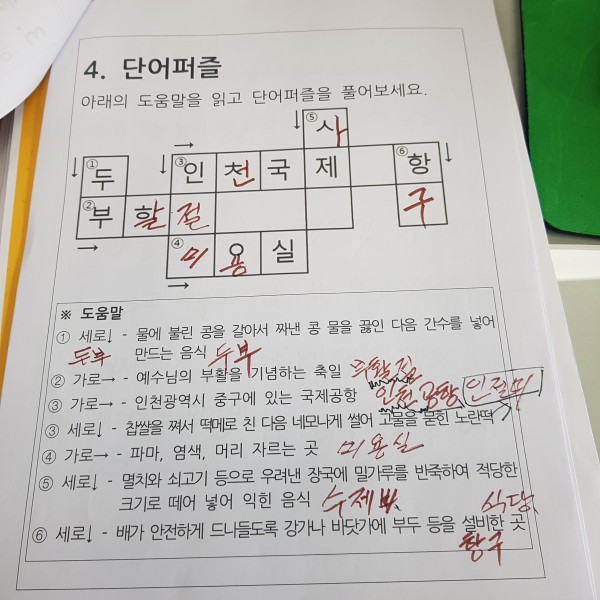 4. 단어퍼즐
아래의 도움말을 읽고 단어퍼즐을 풀어보세요.
↓ ⑤ 사
↓ ① 두 → ③ 인 천 국 제 ⑥ 항 ↓
② 부 활 절 구
→ ④ 미 용 실
→
※ 도움말
① 세로↓ - 물에 불린 콩을 갈아서 짜낸 콩 물을 끓인 다음 간수를 넣어
두부 만드는 음식 두부
② 가로→ - 예수님의 부활을 기념하는 축일
③ 가로→ - 인천광역시 중구에 있는 국제공항 인천 공항 인절미
③ 세로↓ - 찹쌀을 쪄서 떡메로 친 다음 네모나게 썰어 고물을 묻힌 노란떡
④ 가로→ - 파마, 염색, 머리 자르는 곳 미용실
⑤ 세로↓ - 멸치와 쇠고기 등으로 우려낸 장국에 밀가루를 반죽하여 적당한
크기로 떼어 넣어 익힌 음식 수제 식당
⑥ 세로↓ - 배가 안전하게 드나들도록 강가나 바닷가에 부두 등을 설비한 곳
항구